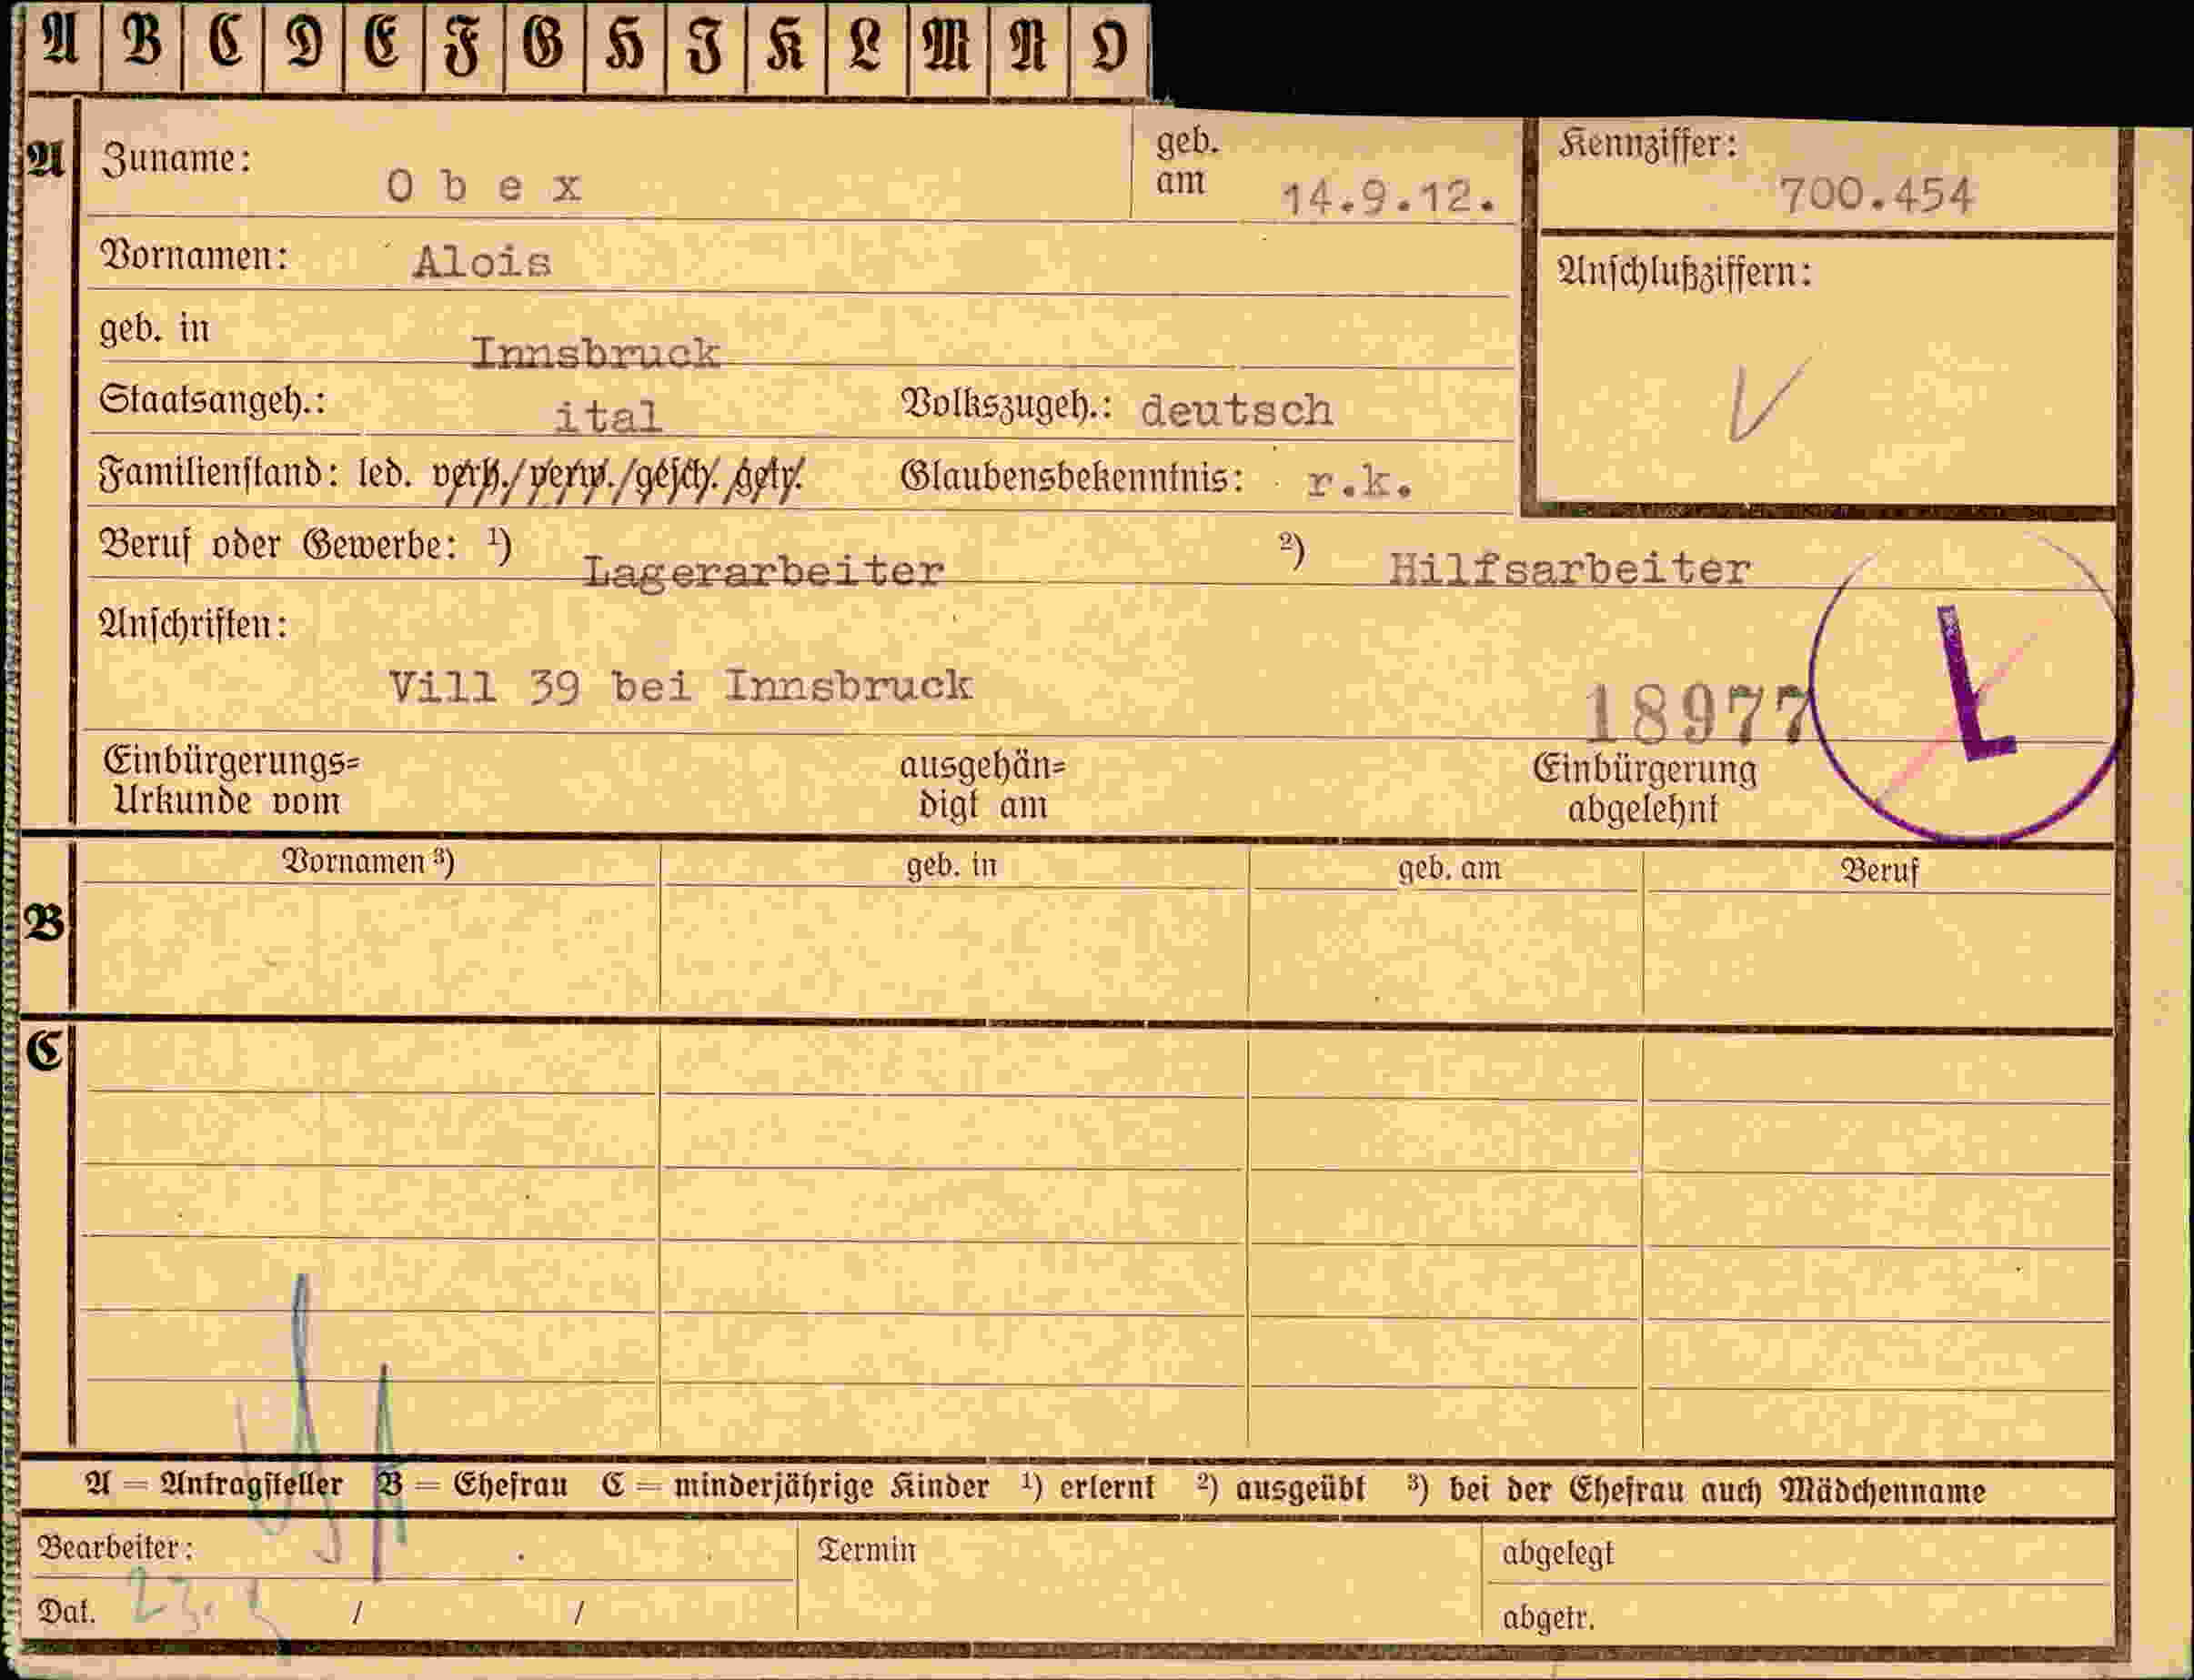 A B C D E F G H I K L M N O
A Zuname: Obex geb. am 14.9.12. Kennziffer: 700.454
Vornamen: Alois Anschlußziffern:
geb. in Innsbruck
Staatsangeh.: ital Volkszugeh.: deutsch
Familienstand: led. verh./verw./gesch./getr. Glaubensbekenntnis: r.k.
Beruf oder Gewerbe: ¹) Lagerarbeiter ²) Hilfsarbeiter
Anschriften:
Vill 39 bei Innsbruck 18977 L
Einbürgerungs=
Urkunde vom
ausgehän=
digt am
Einbürgerung
abgelehnt
Vornamen ³) geb. in geb. am Beruf
B
C
A = Antragsteller B = Ehefrau C = minderjährige Kinder ¹) erlernt ²) ausgeübt ³) bei der Ehefrau auch Mädchenname
Bearbeiter: Termin abgelegt
Dat. 23. / / abgetr.